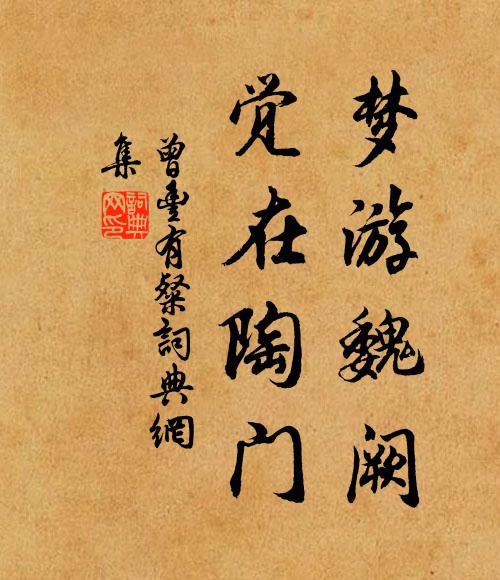 梦游魏阙
觉在陶门
曾豐有粲詞典網
集
詞典
网印